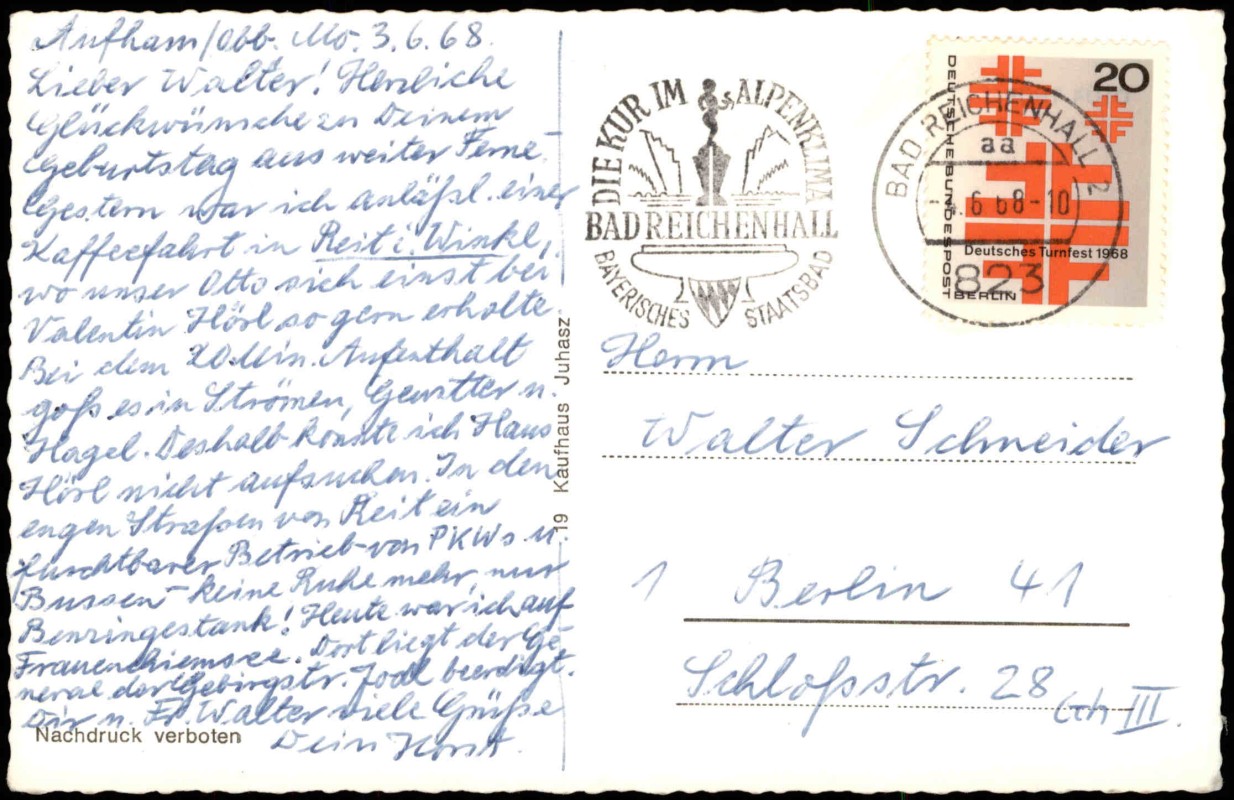 Aufham/Obb. Mo. 3.6.68.
Lieber Walter! Herzliche
Glückwünsche zu Deinem
Geburtstag aus weiter Ferne.
Gestern war ich anläßl. einer
Kaffeefahrt in Reit i. Winkl,
wo unser Otto sich einst bei
Valentin Hörl so gern erholte.
Bei dem 20 Min. Aufenthalt
goß es in Strömen, Gewitter u.
Hagel. Deshalb konnte ich Haus
Hörl nicht aufsuchen. In den
engen Straßen von Reit ein
furchtbarer Betrieb von PKWs u.
Bussen - keine Ruhe mehr, nur
Benzingestank! Heute war ich auf
Frauenchiemsee. Dort liegt der Ge-
neral der Gebirgstr. Jodl beerdigt.
Dir u. Fr. Walter viele Grüße
Dein Horst.
Nachdruck verboten
19 Kaufhaus Juhasz
DIE KUR IM ALPENKLIMA
BAD REICHENHALL
BAYERISCHES STAATSBAD
BAD REICHENHALL 2
aa
6 68-10
823
20
DEUTSCHE BUNDESPOST
BERLIN
Deutsches Turnfest 1968
Herrn
Walter Schneider
1 Berlin 41
Schloßstr. 28
Gth III.